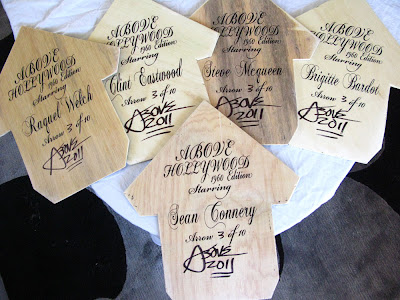 ABOVE
HOLLYWOOD
1960 Edition:
Starring
Raquel Welch
Arrow 3 of 10
ABOVE
2011
ABOVE
HOLLYWOOD
1960 Edition:
Starring
Clint Eastwood
Arrow 3 of 10
ABOVE
2011
ABOVE
HOLLYWOOD
1960 Edition:
Starring
Steve Mcqueen
Arrow 3 of 10
ABOVE
2011
ABOVE
HOLLYWOOD
1960 Edition:
Starring
Brigitte Bardot
Arrow 3 of 10
ABOVE
2011
ABOVE
HOLLYWOOD
1960 Edition:
Starring
Sean Connery
Arrow 3 of 10
ABOVE
2011